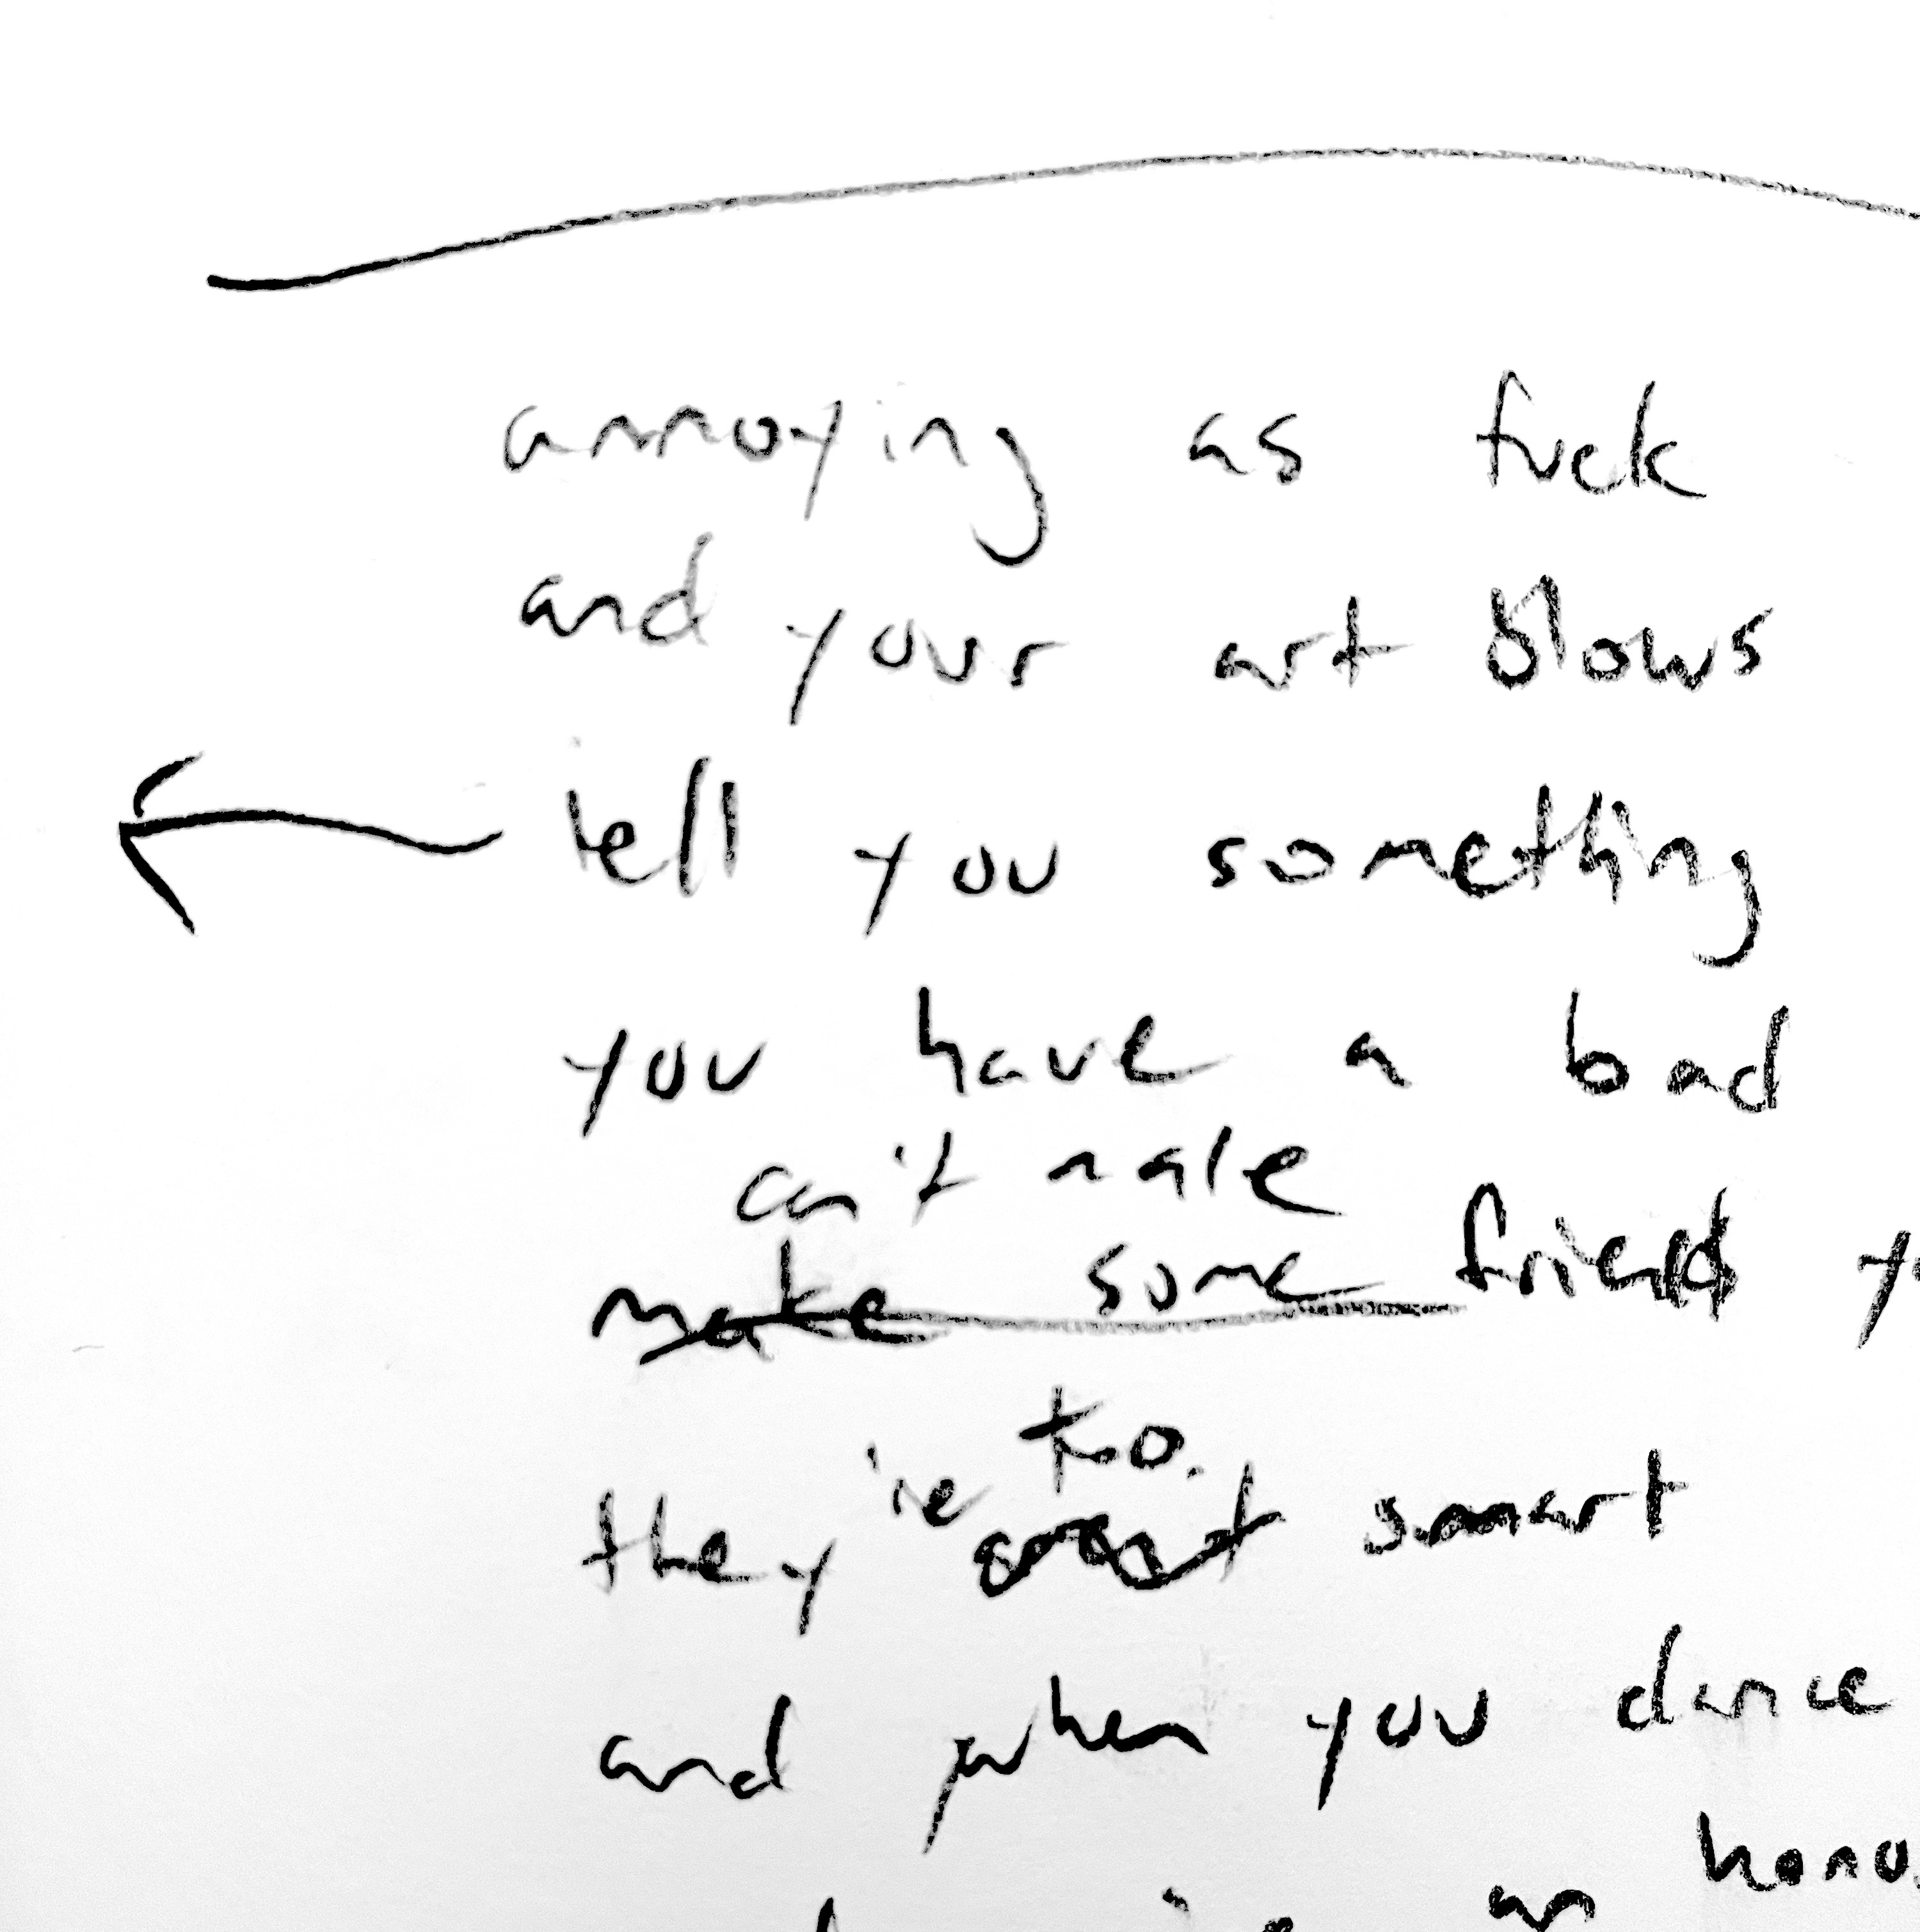 annoying as fuck
and your art blows
tell you something
you have a bad
can't make
make some friends
they're too
smart
and when you dance
an